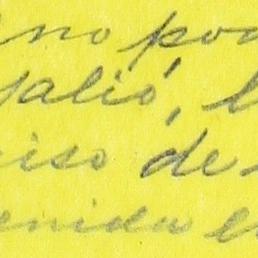 no por
salió,
iso de
enida en